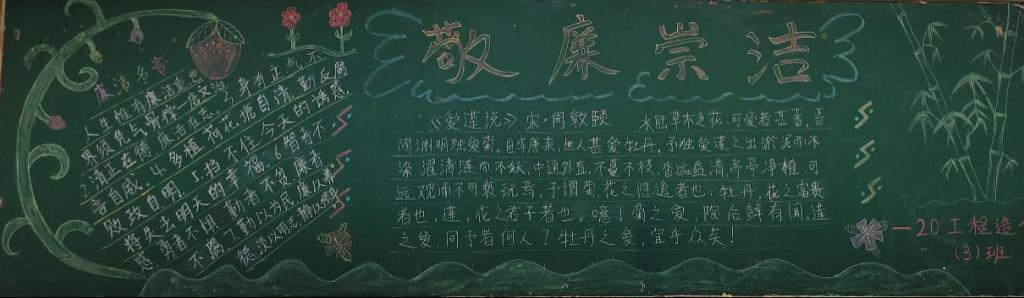 敬廉崇洁
廉洁名言
人生惟有廉洁重
2.清正在德,廉洁在志。3.身有正气,不
言自威。4.多植荷花塘自清,勤反腐
败政自明。5.挡不住今天的诱惑,
将失去明天的幸福。6.智者不
惑,勇者不惧,勤者不负,廉者
不腐。7.勤以为民,廉以养
德,淡以明志,静以
《爱莲说》宋·周敦颐 水陆草木之花,可爱者甚蕃,晋
陶渊明独爱菊。自李唐来,世人甚爱牡丹,予独爱莲之出淤泥而不
染,濯清涟而不妖,中通外直,不蔓不枝,香远益清,亭亭净植,可
远观而不可亵玩焉。予谓菊花之隐逸者也;牡丹,花之富贵
者也,莲,花之君子者也。噫!菊之爱,陶后鲜有闻,莲
之爱,同予者何人?牡丹之爱,宜乎众矣!
—20工程造
(3)班